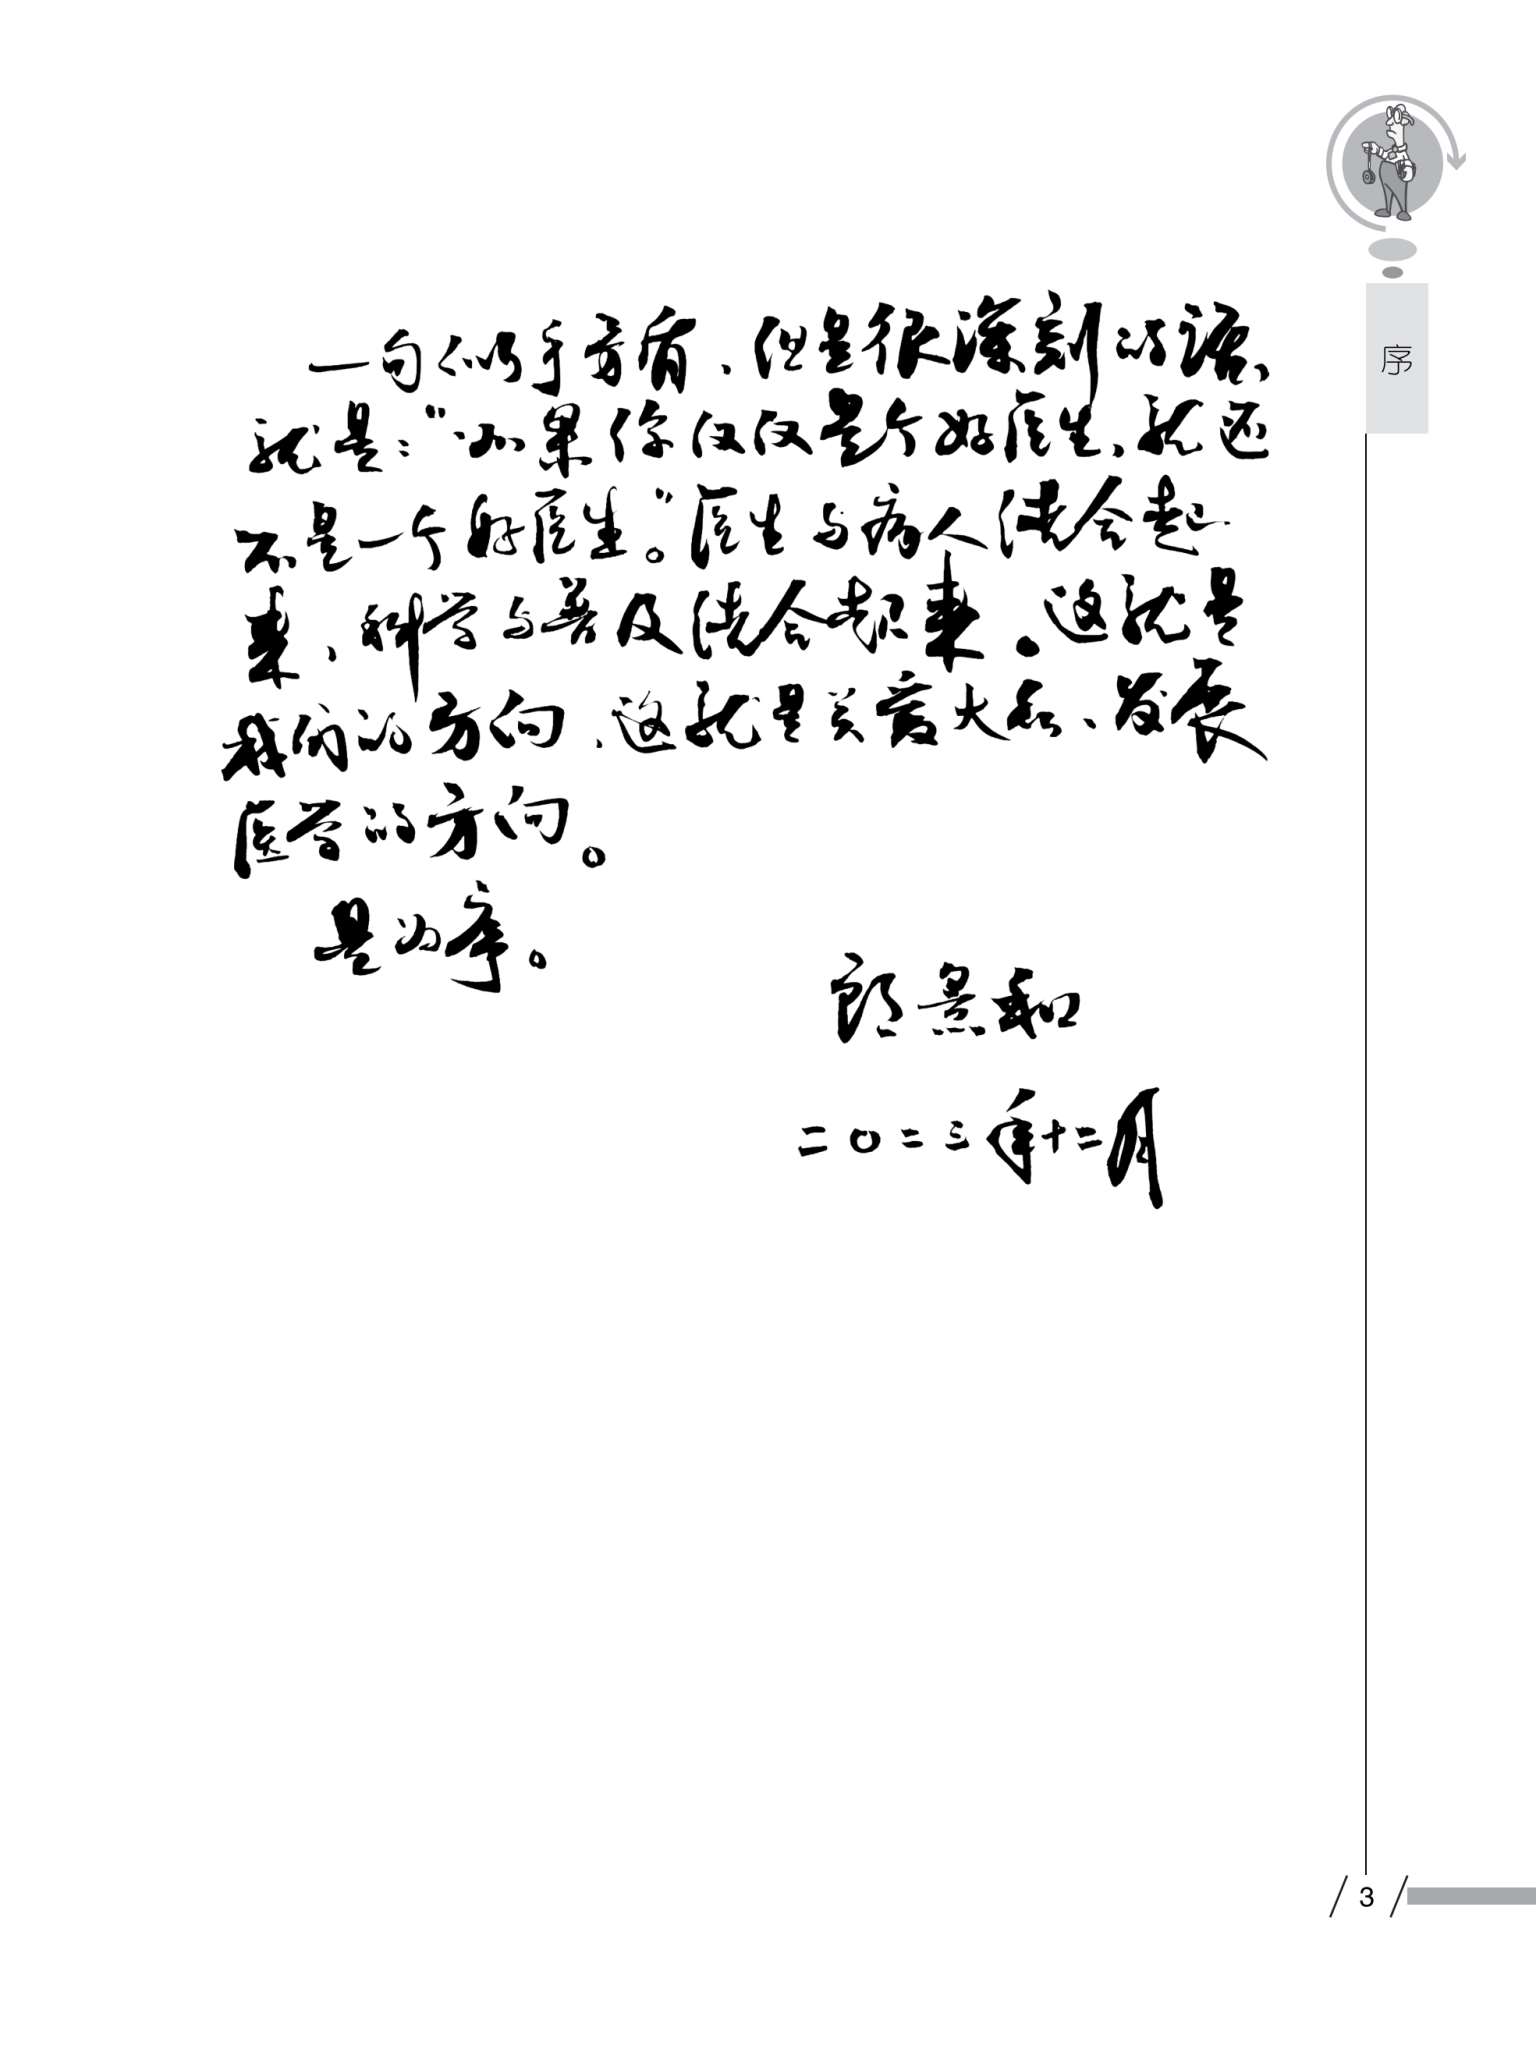 一句似乎矛盾、但是很深刻的话、
就是：“如果你仅仅是个好医生、就还
不是一个好医生。”医生与病人结合起
来、科学与普及结合起来。这就是
我们的方向、这就是关爱大众、发展
医学的方向。
是为序。
郎景和
二〇二三年十二月
序
3